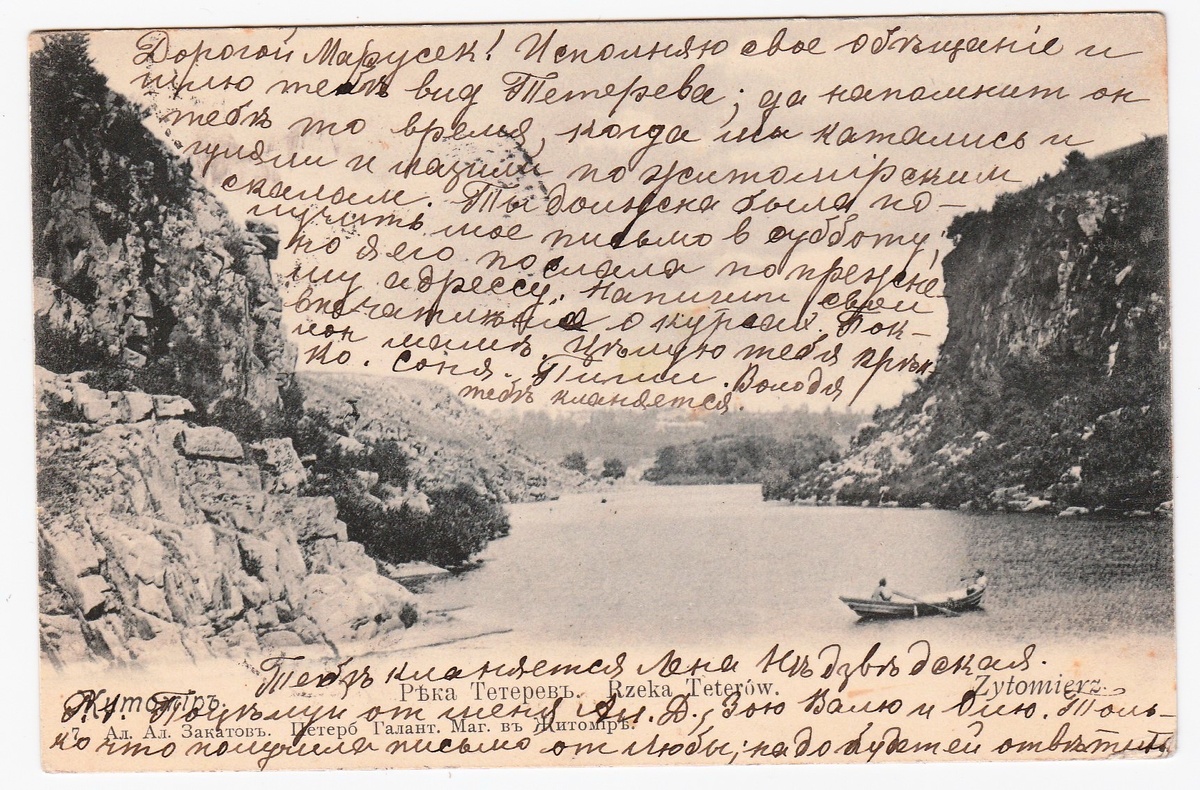 Дорогой Марусек! Исполняю свое обѣщанiе и
шлю тебѣ вид Тетерева; да напомнит он
тебѣ то время, когда мы катались и
гуляли и лазили по житомiрским
скалам. Ты должна была по-
лучить мое письмо в субботу,
но я его послала по прежне-
му адрессу. Напиши свои
впечатлѣнiя о курсах. Пок-
лон мамѣ. Цѣлую тебя крѣп-
ко. Соня. Пиши. Володя
тебѣ кланяется.
Тебѣ кланяется Лена Нѣдзвѣдская.
Житомiръ. Рѣка Тетеревъ. Rzeka Teterów. Żytomierz.
P.S. Поцѣлуй от меня Ан. Д., Зою Валю и Олю. Толь-
7 Ал. Ал. Закатовъ. Петерб Галант. Маг. въ Житомiрѣ.
ко что получила письмо от Любы; надо будет ей отвѣтить